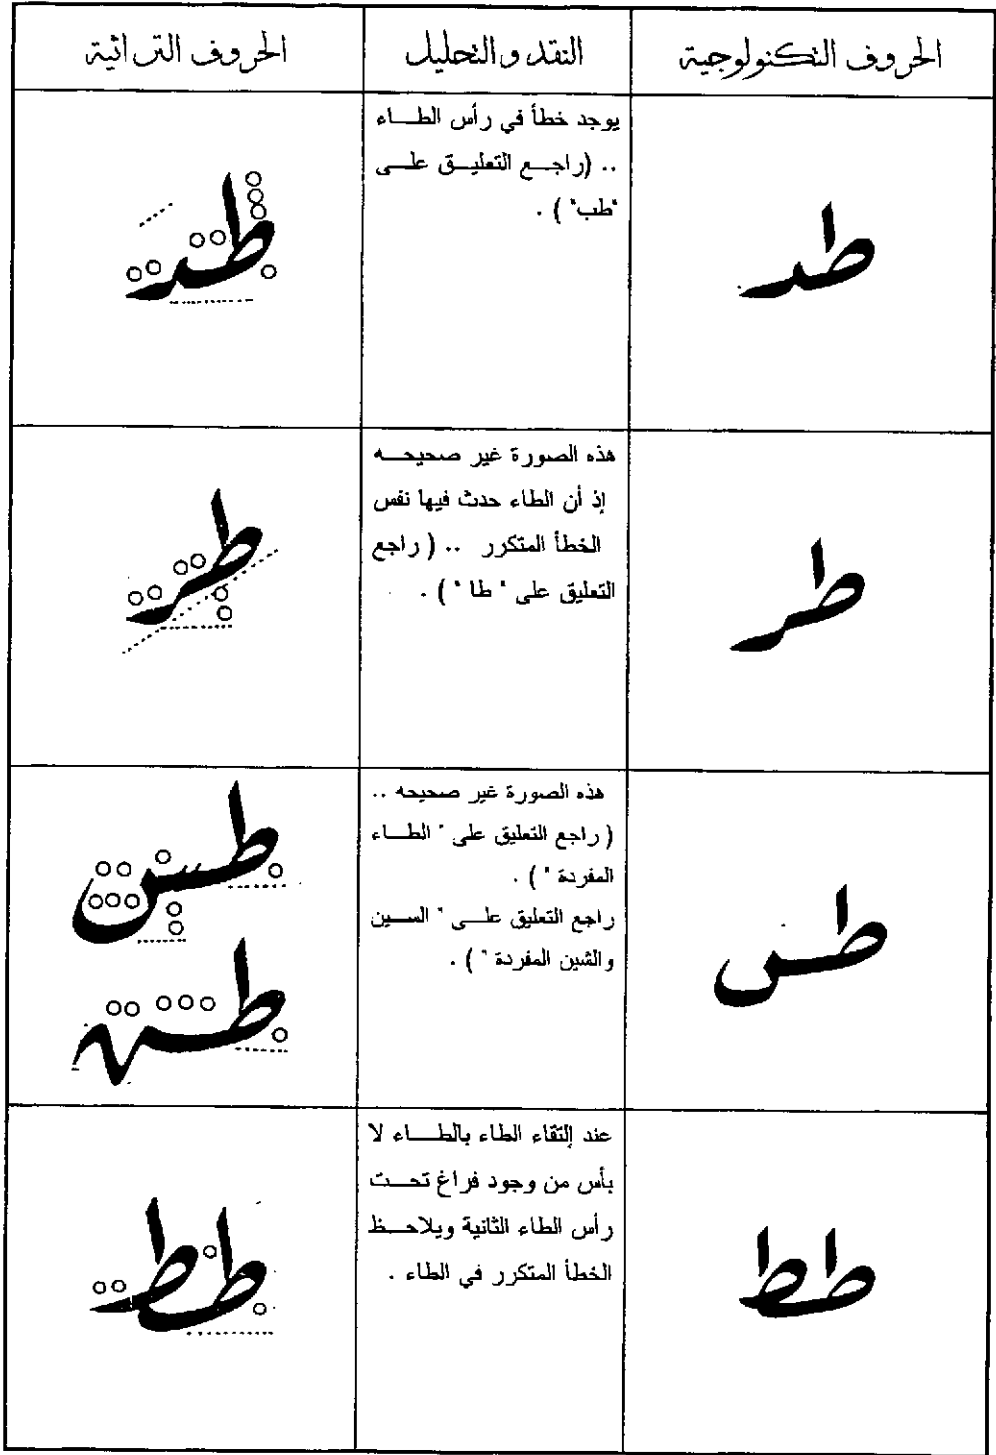 الحروف التكنولوجية
النقد والتحليل
الحروف التراثية
طد
يوجد خطأ في رأس الطـــاء
.. (راجـــع التعليـــق علـــى
"طب" ) .
طد
طر
هذه الصورة غير صحيحـــه
إذ أن الطاء حدث فيها نفس
الخطأ المتكرر .. ( راجع
التعليق على " طا " ) .
طر
طس
هذه الصورة غير صحيحه ..
( راجع التعليق على " الطـــاء
المفردة " ) .
راجع التعليق علـــى " الســـين
والشين المفردة " ) .
طس
طس
طط
عند إلتقاء الطاء بالطـــاء لا
بأس من وجود فراغ تحـــت
رأس الطاء الثانية ويلاحـــظ
الخطأ المتكرر في الطاء .
طط